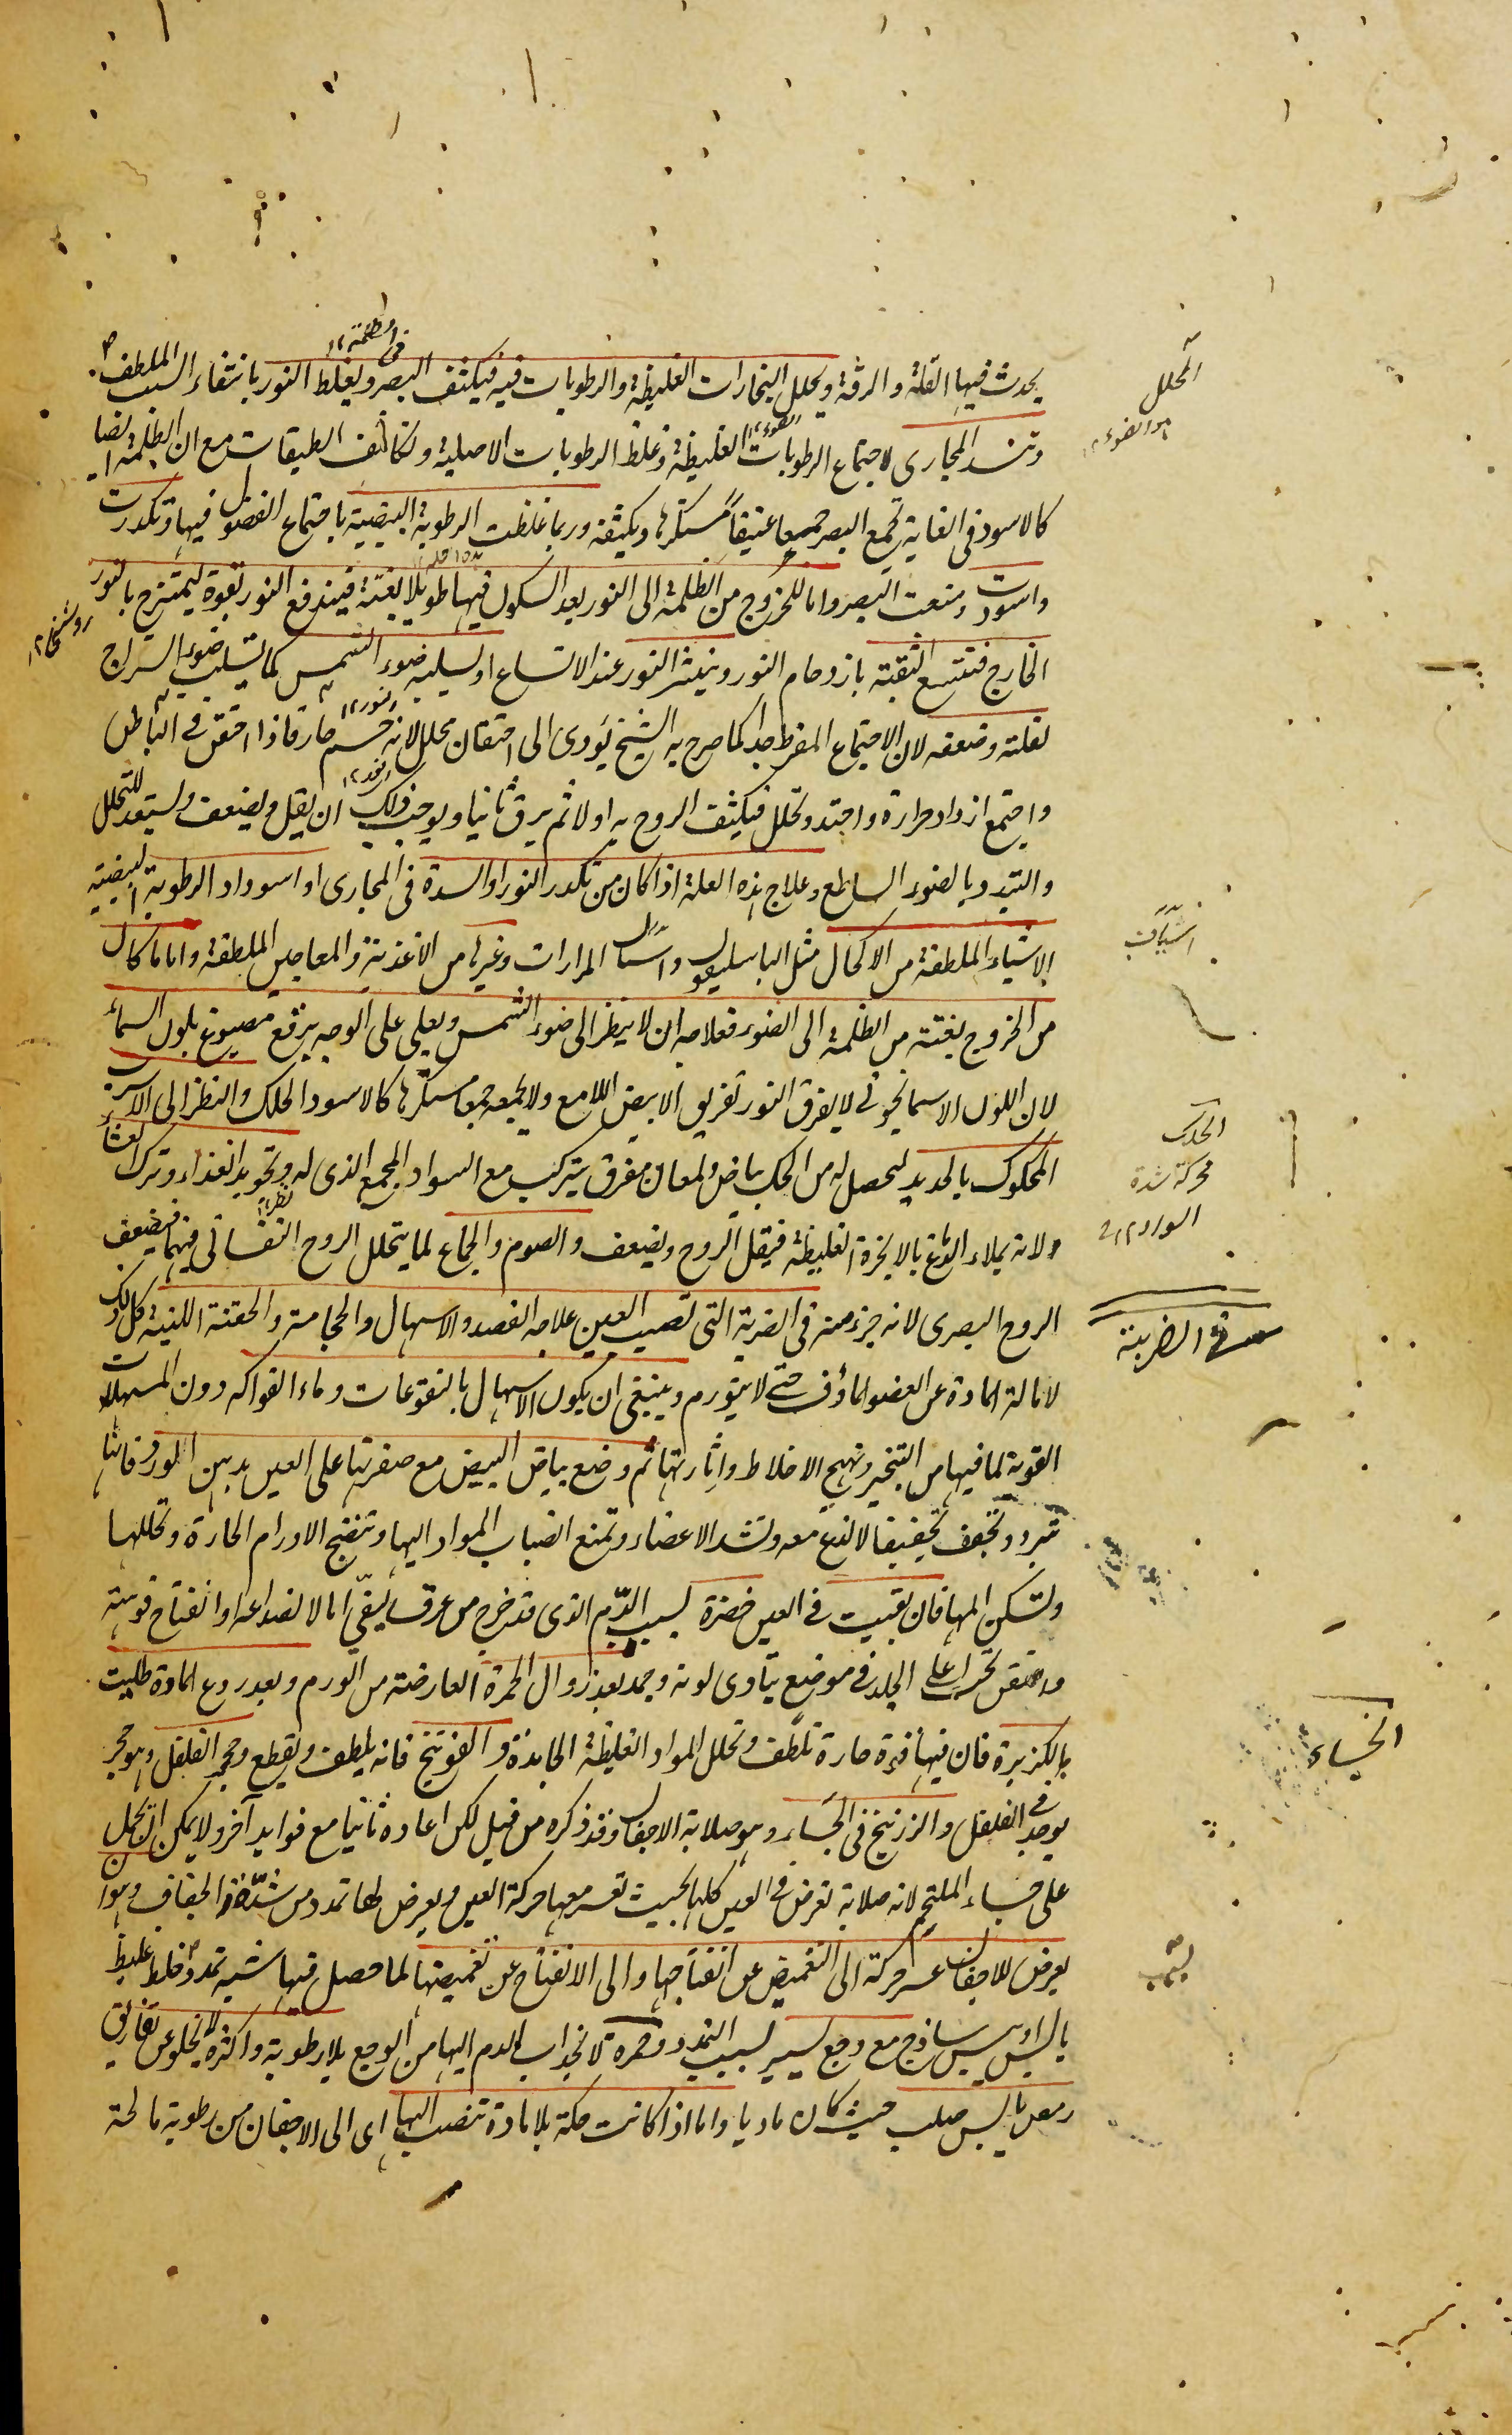 يحدث فيها القلة والرقة ويحلل البخارات الغليظة والرطوبات فيه فيكثف البصر ويغلظ النور بانتفاء السبب الملطف
وتنسد المجارى لاجتماع الرطوبات الغليظة وغلظ الرطوبات الاصلية وتكاثف الطبقات مع ان الظلمة ايضا
كالاسود فى الغاية تجمع البصر جمعا عنيفاً مستكرها ويكثفه وربما غلظت الرطوبة البيضية باجتماع الفضول فيها وتكدرت
واسودت ومنعت البصر واما للخروج من الظلمة الى النور بعد السكون فيها طويلا بغتة فيندفع النور بقوة ليمتزج بالنور
الخارج فتتسع الثقبة بازدحام النور وينتشر النور عند الاتساع او يسلبه ضوء الشمس كما يسلب ضوء السراج
لقلته وضعفه لان الاجتماع المفرط جدا كما صرح به الشيخ يؤدى الى احتقان محلل لانه جسم حار فاذا احتقن فى الباطن
واجتمع ازداد حرارة واحتد وتحلل فيكثف الروح به اولا ثم يرق ثانيا ويوجب ذلك ان يقل ويضعف ويستعد للتحلل
والتبدد بالضوء الساطع وعلاج هذه العلة اذا كان من تكدر النور او السدة فى المجارى او اسوداد الرطوبة البيضية
الاشياء الملطفة من الاكحال مثل الباسليقون واشياف المرارات وغيرها من الاغذية والمعاجين الملطفة واما ما كان
من الخروج بغتة من الظلمة الى الضوء فعلاجه ان لا ينظر الى ضوء الشمس ويعلى على الوجه ببرقع مصبوغ بلون السماء
لان اللون الاسمانجونى لا يفرق النور تفريق الابيض اللامع ولا يجمعه جمعا مستكرها كالاسود الحلك والنظر الى الاسرب
المحكوك بالحديد ليحصل له من الحك بياض ولمعان مفرق يتركب مع السواد المجمع الذى له وتجويد الغذاء وترك العشاء
ولانه يملاء الدماغ بالابخرة الغليظة فيقل الروح ويضعف والصوم والجماع لما يتحلل الروح النفسانى فيهما فيضعف
الروح البصرى لانه جزء منه فى الضربة التى تصيب العين علاجه الفصد والاسهال والحجامة والحقنة اللينة كل ذلك
لامالة المادة عن العضو الماؤف حتى لا يتورم وينبغى ان يكون الاسهال بالنقوعات وماء الفواكه دون المسهلات
القوية لما فيها من التبخير وتهيج الاخلاط واثارتها ثم وضع بياض البيض مع صفرتها على العين بدهن الورد فانها
تبرد وتجفف تجفيفا لا لذع معه وتشد الاعضاء وتمنع انصباب المواد اليها وتنضج الاورام الحارة وتحللها
وتسكن المها فان بقيت فى العين خضرة بسبب الدم الذى قد خرج من عرق ليفى اما لانصداعه او انفتاح فوهته
واحتقن تحت اعلى الجلد فى موضع يتأدى لونه وجمد بعد زوال الحمرة العارضة من الورم وبعد ردع المادة طليت
بالكزبرة فان فيها قوة حارة تلطف وتحلل المواد الغليظة الجامدة والفوتنج فانه يلطف ويقطع وحجر الفلفل وهو حجر
يوجد فى الفلفل والزرنيخ فى الجساء وهو صلابة الاجفان وقد ذكره من قبل لكن اعاده ثانيا مع فوايد آخر ولا يمكن ان يحمل
على جساء الملتحم لانه صلابة تعرض فى العين كلها بحيث تعسر معها حركة العين ويعرض لها تمدد من شدة الجفاف وهو ان
يعرض للاجفان عسر حركة الى التغميض عن انفتاحها والى الانفتاح عن تغميضها لما حصل فيها شبه تمدد وخلط غليظ
باليبس ساذج مع وجع يسير بسبب التمدد وحمرة لانجذاب الدم اليها من الوجع بلا رطوبة واكثره لا يخلو عن تفاريق
رمص يابس صلب حيث كان ماديا واما اذا كانت حكة بلا مادة تنصب اليها اى الى الاجفان من رطوبة مالحة
المحلل
هو الضوء
اشياف
الحلك
محركة شدة
السواد ١٢
فى الضربة
الجساء